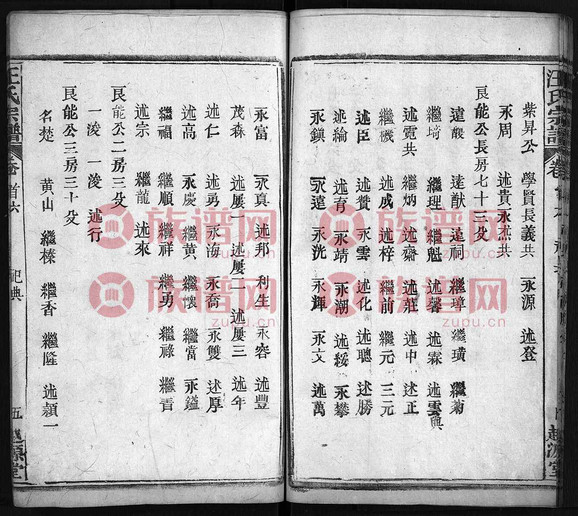 汪氏宗譜
紫昇公 學賢長義共 永源 述登
永周 述貴永 共
艮能公長房七十三殳
遠毅 遠猷 遠祠 繼璋 繼璜 繼菊
繼琦 繼理 繼魁 述馨 述霖 述雲興
述貢共 繼炳 述齋 述莊 述中 述正
繼磯 述成 述梓 繼前 繼元 三元
述臣 述贊 永雲 述化 述聰 述勝
述綸 述育 永靖 永潮 述綏 永攀
永鎭 永遠 永洸 永輝 永文 述萬
永富 永真 述邦 利生 永容 述豐
茂森 述屢一 述屢一 述屢三 述年
述仁 述勇 永海 永裔 永雙 述厚
述高 永慶 繼黃 繼懷 繼當 永鎰
繼禎 繼順 繼祥 繼勇 繼祿 繼青
述宗 繼龍 述來
艮能公二房三殳
一凌 一凌 述行
艮能公三房三十殳
名楚 黃山 繼榛 繼香 繼隆 述顯一
汪氏宗譜 卷首六 祀典 五 越源堂
族譜网
zupu.cn